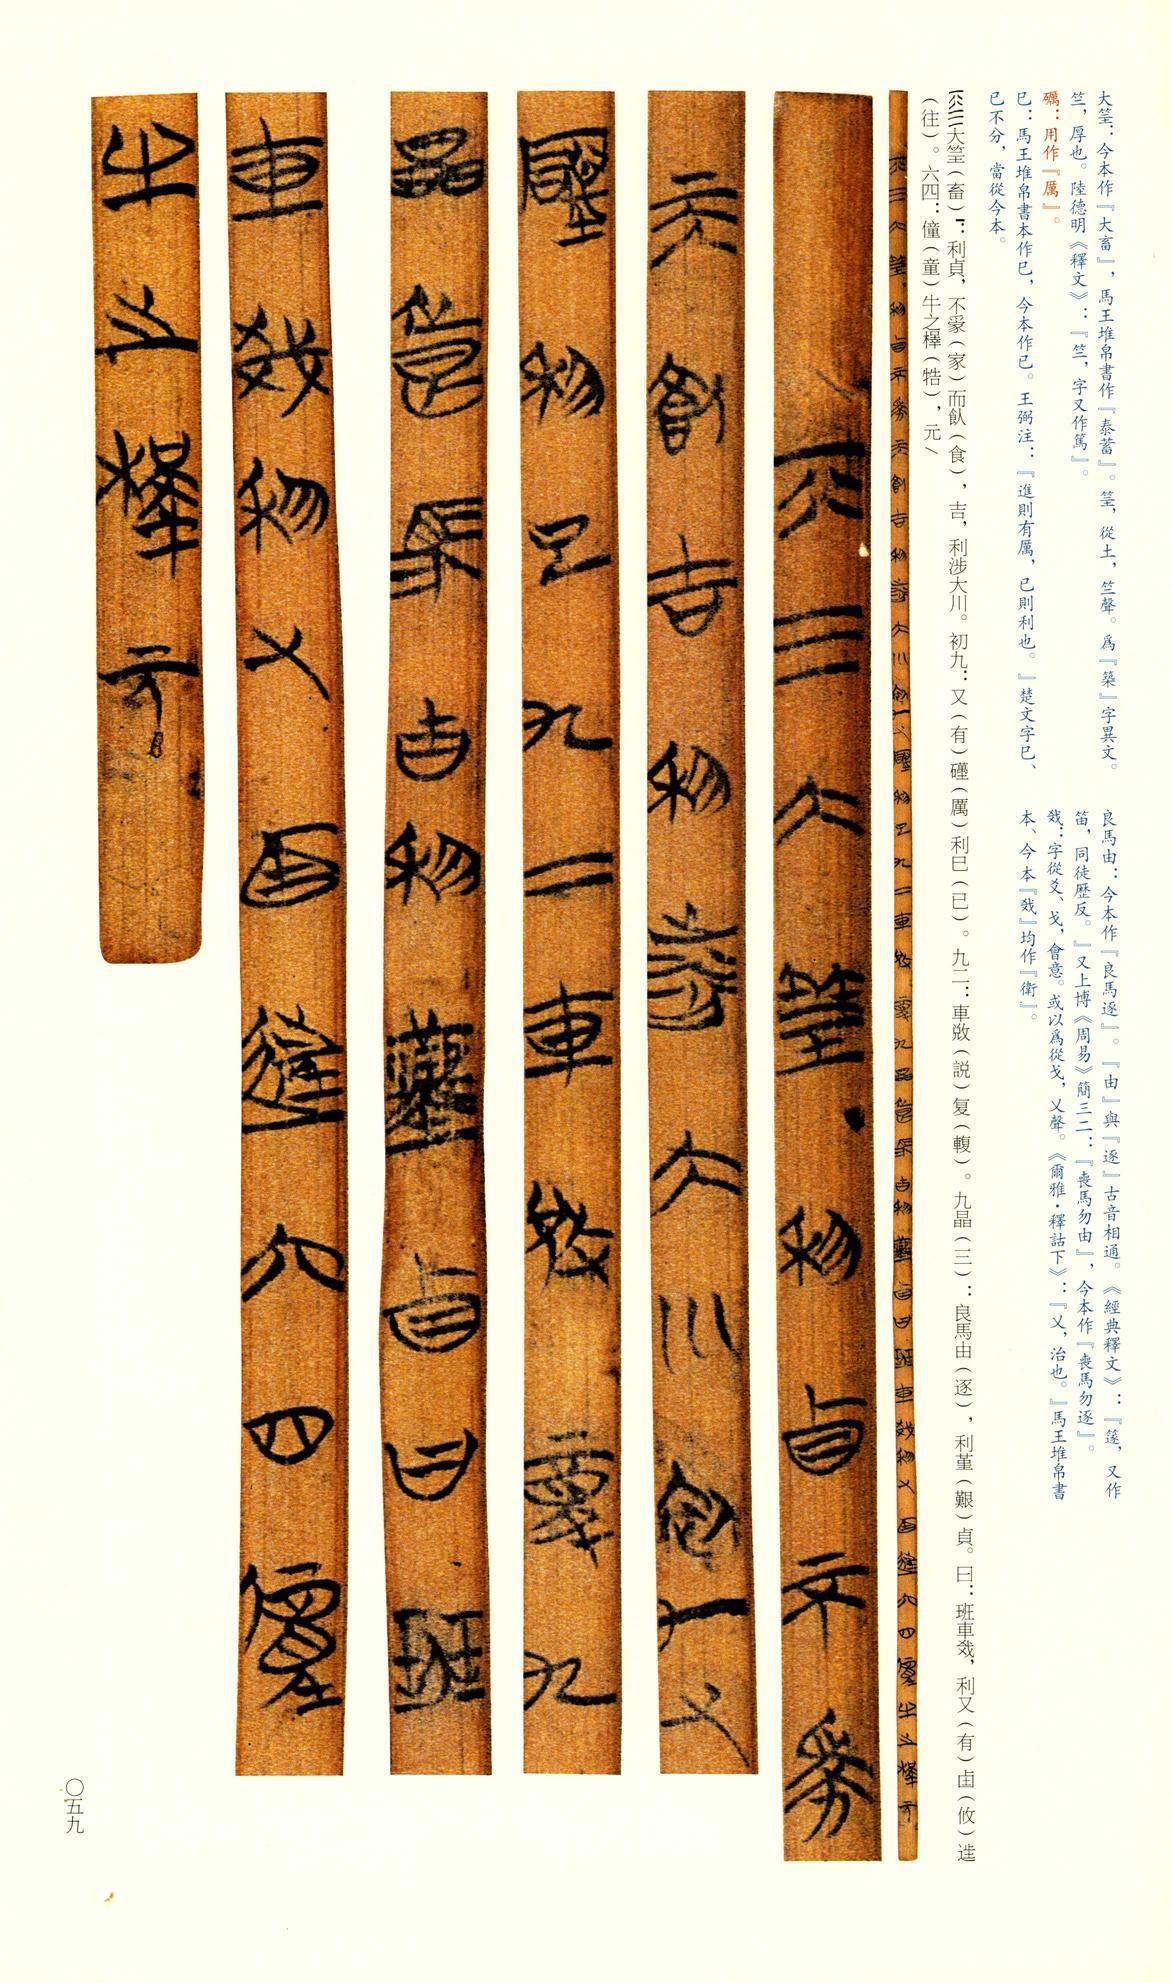 大䈞：今本作『大畜』，馬王堆帛書作『泰蓄』。䈞，從土，竺聲。爲『築』字異文。
竺，厚也。陸德明《釋文》：『竺，字又作篤』。
礪：用作『厲』。
巳：馬王堆帛書本作巳，今本作已。王弼注：『進則有厲，已則利也。』楚文字巳、
已不分，當從今本。
良馬由：今本作『良馬逐』。『由』與『逐』古音相通。《經典釋文》：『篴，又作
笛，同徒歷反。』又上博《周易》簡三二：『喪馬勿由』，今本作『喪馬勿逐』。
：字從爻、戈，會意。或以爲從戈，乂聲。《爾雅·釋詁下》：『乂，治也。』馬王堆帛書
本、今本『』均作『衛』。
大䈞（畜）：利貞，不（家）而飤（食），吉，利涉大川。初九：又（有）礪（厲）利巳（已）。九二：車敓（説）复（輹）。九晶（三）：良馬由（逐），利堇（艱）貞。曰：班車，利又（有）（攸）
（往）。六四：僮（童）牛之（牿），元
〇五九